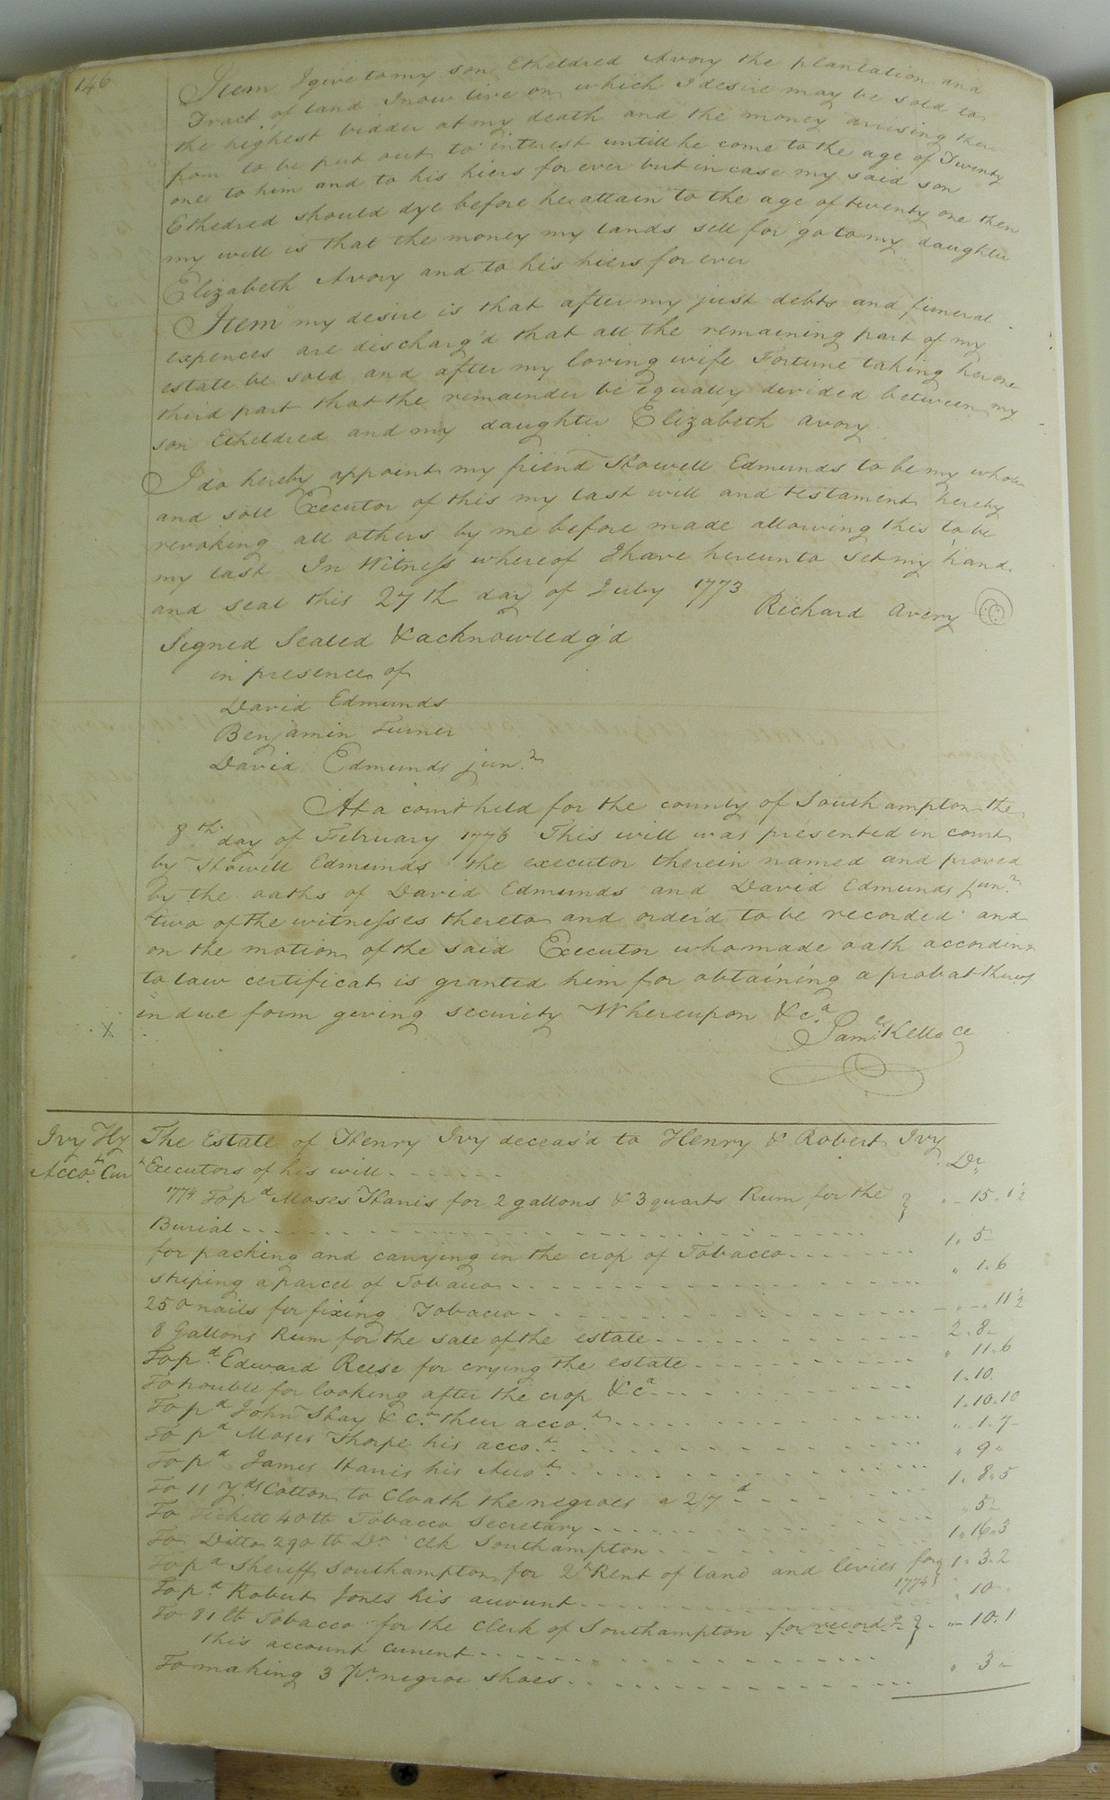 146
Item I give to my son Etheldred Avory the plantation and
Tract of land I now live on which I desire may be sold to
the highest bidder at my death and the money arrising there
from to be put out to interest untill he come to the age of Twenty
one to him and to his hiers for ever but in case my said son
Etheldred should dye before he attain to the age of twenty one then
my will is that the money my lands sell for go to my daughter
Elizabeth Avory and to his hiers for ever
Item my desire is that after my just debts and funeral
expences are discharg'd that all the remaining part of my
estate be sold and after my loving wife Fortune taking her one
third part that the remainder be equally divided between my
son Etheldred and my daughter Elizabeth Avory
I do hereby appoint my friend Howell Edmunds to be my whole
and sole Executor of this my last will and testament hereby
revoking all others by me before made allowing this to be
my last In Witness whereof I have hereunto set my hand
and seal this 27th day of July 1773 Richard Avery
Signed Sealed & acknowledg'd
in presence of
David Edmunds
Benjamin Turner
David Edmunds junr
At a court held for the county of Southampton the
8th day of February 1776 This will was presented in court
by Howell Edmunds the executor therein named and proved
by the oaths of David Edmunds and David Edmunds junr
two of the witnesses thereto and order'd to be recorded and
on the motion of the said Executor who made oath according
to law certificat is granted him for obtaining a probat thereof
in due form giving security Whereupon &ca
X
Saml Kello CC
Ivy Hy The Estate of Henry Ivy deceas'd to Henry & Robert Ivy
Accot Curt Executors of his will Dr
1774 To pd Moses Harris for 2 gallons & 3 quarts Rum for the } " 15. 1½
Burial
for packing and carrying in the crop of Tobacco 1. 5 -
striping a parcel of Tobacco " 1. 6
250 nails for fixing Tobacco " - 11½
8 Gallons Rum for the sale of the estate 2. 8 -
To pd Edward Reese for crying the estate " 11. 6
To trouble for looking after the crop &ca 1. 10.
To pd John Hay & Co their accot 1. 10. 10
To pd Moses Thorpe his accot " 1. 7 -
To pd James Harris his Accot " 9 "
To 11 yds Cotton to cloath the negroes a 2/7d 1. 8. 5
To Tickett 40 lb Tobacco Secretary " 5 -
To Ditto 290 lb Do Clk Southampton 1. 16. 3
To pd Sheriff Southampton for Qt Rent of land and levies for 1774 } 1. 3. 2
To pd Robert Jones his account " 10 -
To 81 lb Tobacco for the Clerk of Southampton for recordg } " 10. 1
this account current
To making 3 pr negroe shoes " 3 -